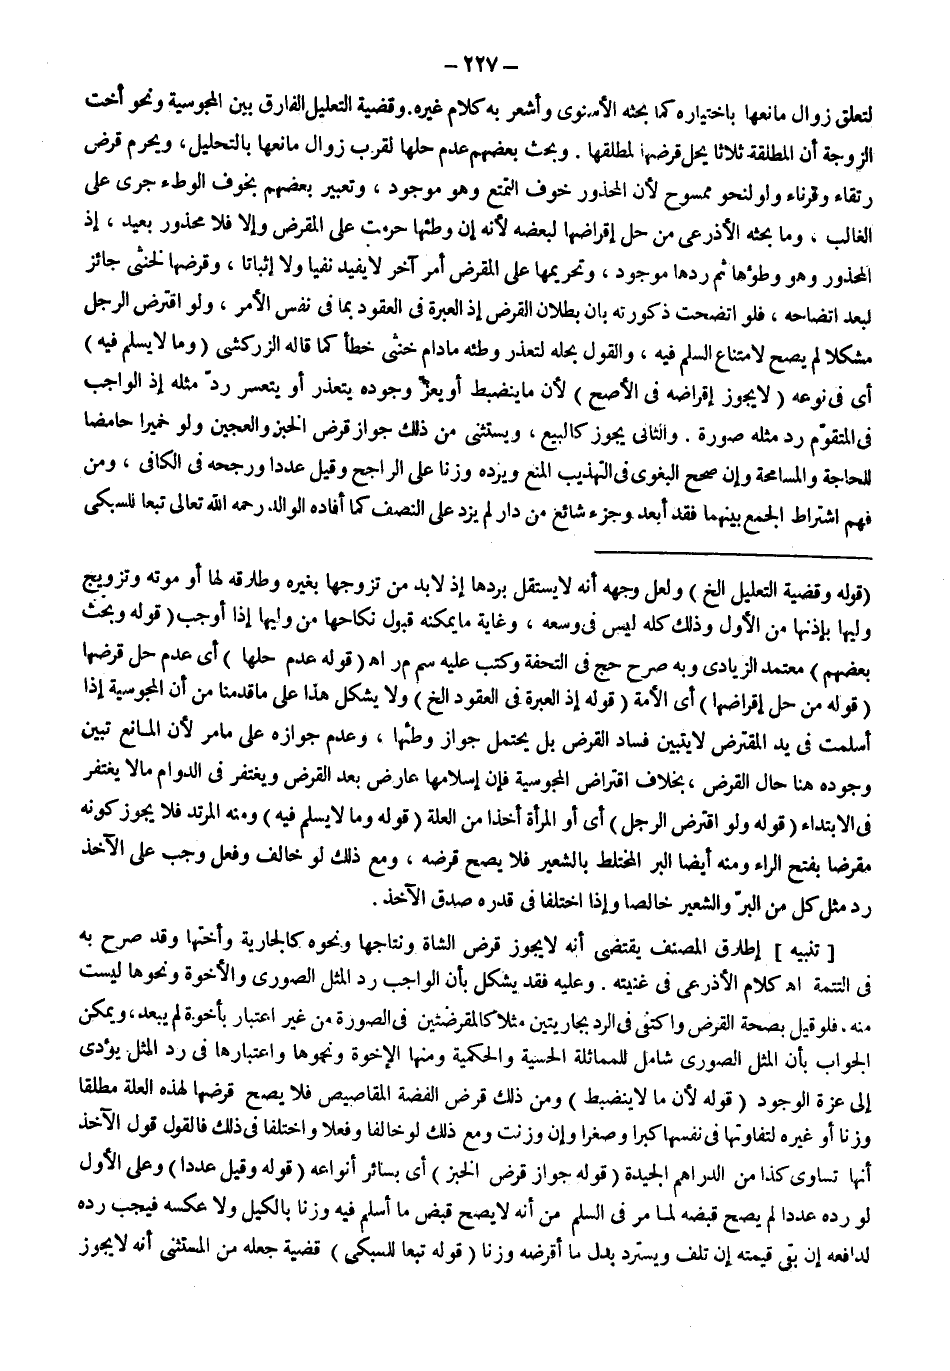 — ٢٢٧ —
لتعلق زوال مانعها باختياره كما بحثه الأسنوى وأشعر به كلام غيره. وقضية التعليل الفارق بين المجوسية ونحو أخت
الزوجة أن المطلقة ثلاثا يحل قرضها لمطلقها . وبحث بعضهم عدم حلها لقرب زوال مانعها بالتحليل، ويحرم قرض
رتقاء وقرناء ولو لنحو ممسوح لأن المحذور خوف التمتع وهو موجود ، وتعبير بعضهم بخوف الوطء جرى على
الغالب ، وما بحثه الأذرعى من حل إقراضها لبعضه لأنه إن وطئها حرمت على المقرض وإلا فلا محذور بعيد ، إذ
المحذور وهو وطؤها ثم ردها موجود ، وتحريمها على المقرض أمر آخر لايفيد نفيا ولا إثباتا ، وقرضها لخنثى جائز
لبعد اتضاحه ، فلو اتضحت ذكورته بان بطلان القرض إذ العبرة فى العقود بما فى نفس الأمر ، ولو اقترض الرجل
مشكلا لم يصح لامتناع السلم فيه ، والقول بحله لتعذر وطئه مادام خنثى خطأ كما قاله الزركشى ( وما لايسلم فيه )
أى فى نوعه ( لايجوز إقراضه فى الأصح ) لأن ماينضبط أو يعزّ وجوده يتعذر أو يتعسر ردّ مثله إذ الواجب
فى المتقوّم رد مثله صورة . والثانى يجوز كالبيع ، ويستثنى من ذلك جواز قرض الخبز والعجين ولو خميرا حامضا
للحاجة والمسامحة وإن صحح البغوى فى التهذيب المنع ويرده وزنا على الراجح وقيل عددا ورجحه فى الكافى ، ومن
فهم اشتراط الجمع بينهما فقد أبعد وجزء شائع من دار لم يزد على النصف كما أفاده الوالد رحمه الله تعالى تبعا للسبكى
(قوله وقضية التعليل الخ ) ولعل وجهه أنه لايستقل بردها إذ لابد من تزوجها بغيره وطلاقه لها أو موته وتزويج
وليها بإذنها من الأول وذلك كله ليس فى وسعه ، وغاية مايمكنه قبول نكاحها من وليها إذا أوجب ( قوله وبحث
بعضهم ) معتمد الزيادى وبه صرح حج فى التحفة وكتب عليه سم م ر اه ( قوله عدم حلها ) أى عدم حل قرضها
( قوله من حل إقراضها ) أى الأمة ( قوله إذ العبرة فى العقود الخ ) ولا يشكل هذا على ماقدمنا من أن المجوسية إذا
أسلمت فى يد المقترض لايتبين فساد القرض بل يحتمل جواز وطئها ، وعدم جوازه على مامر لأن المانع تبين
وجوده هنا حال القرض ، بخلاف اقتراض المجوسية فإن إسلامها عارض بعد القرض ويغتفر فى الدوام مالا يغتفر
فى الابتداء ( قوله ولو اقترض الرجل ) أى أو المرأة أخذا من العلة ( قوله وما لايسلم فيه ) ومنه المرتد فلا يجوز كونه
مقرضا بفتح الراء ومنه أيضا البر المختلط بالشعير فلا يصح قرضه ، ومع ذلك لو خالف وفعل وجب على الآخذ
رد مثل كل من البرّ والشعير خالصا وإذا اختلفا فى قدره صدق الآخذ .
[ تنبيه ] إطلاق المصنف يقتضى أنه لايجوز قرض الشاة ونتاجها ونحوه كالجارية وأختها وقد صرح به
فى التتمة اه كلام الأذرعى فى غنيته . وعليه فقد يشكل بأن الواجب رد المثل الصورى والأخوة ونحوها ليست
منه . فلو قيل بصحة القرض واكتفى فى الرد بجاريتين مثلا كالمقرضتين فى الصورة من غير اعتبار بأخوة لم يبعد ، ويمكن
الجواب بأن المثل الصورى شامل للمماثلة الحسية والحكمية ومنها الإخوة ونحوها واعتبارها فى رد المثل يؤدى
إلى عزة الوجود ( قوله لأن ما لاينضبط ) ومن ذلك قرض الفضة المقاصيص فلا يصح قرضها لهذه العلة مطلقا
وزنا أو غيره لتفاوتها فى نفسها كبرا وصغرا وإن وزنت ومع ذلك لو خالفا وفعلا واختلفا فى ذلك فالقول قول الآخذ
أنها تساوى كذا من الدراهم الجيدة ( قوله جواز قرض الخبز ) أى بسائر أنواعه ( قوله وقيل عددا ) وعلى الأول
لو رده عددا لم يصح قبضه لما مر فى السلم من أنه لايصح قبض ما أسلم فيه وزنا بالكيل ولا عكسه فيجب رده
لدافعه إن بقى وقيمته إن تلف ويسترد بدل ما أقرضه وزنا ( قوله تبعا للسبكى ) قضية جعله من المستثنى أنه لايجوز